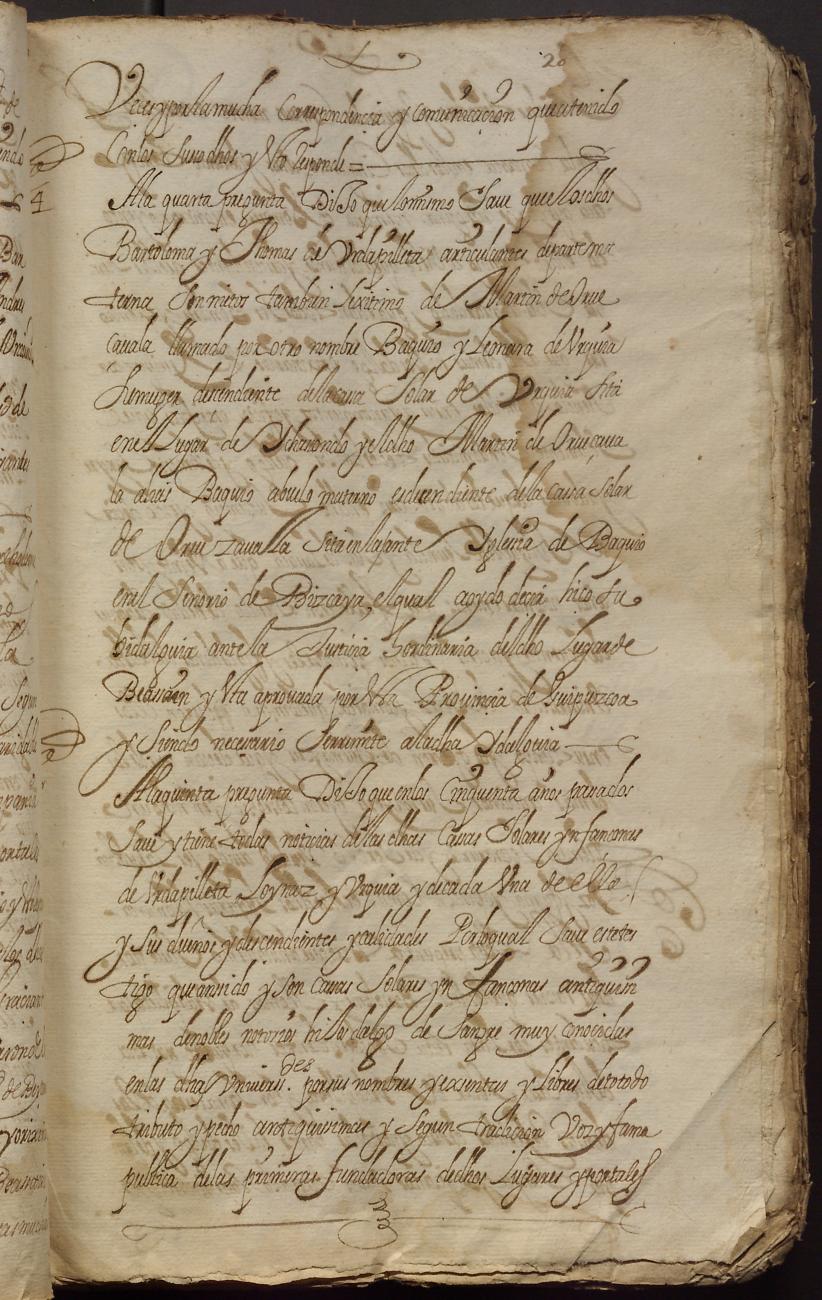 20
Veces y por la mucha Correspondencia y comunicaçion que a tenido
Con los Susodhos y Vto Responde =
4
A la quarta pregunta Dixo que lo mismo Saue que los dhos
Bartolome y Thomas de Vrdapilleta articulantes de parte ma
terna Son nietos tambien lexitimo de Martin de Orue
cauala llamado por otro nombre Baquio y Leonara de Vrquia
Su muger descendiente de la casa Solar de Vrquia Sita
en el Lugar de Ychasondo y el dho Martin de Orueçaua
la alias Baquio abuelo materno es decendiente de la casa Solar
de Orue zaualla Sita en la ante Yglesia de Baquio
en el Sinorio de Bizcaya, el qual a oydo deçir hiço su
hidalguia ante la Justicia hordinaria del dho Lugar de
Beasaen y Vta aprouada por Vta Prouinçia de Guipuzcoa
y Siendo necesario Se rremite a la dha Ydalguia
A la quinta pregunta Dixo que en los Cinquenta años pasados
Saue y tiene todas noticias de las dhas Casas Solares ynfançonas
de Vrdapilleta Loynaz y Vrquia y de cada Vna de ellas
y sus dueños y descendientes y calidades Por lo qual Saue este tes
tigo que an sido y son Casas Solares ynfançonas antiquisi
mas de nobles notorios hixos dalgo de Sangre muy conocidas
en las dhas Vniversi.des por sus nombres y exsentas y libres de todo
tributo y pecho antiquissimas y Segun tradicion Voz y fama
publica de las primeras fundadoras de dhos Lugares y portales